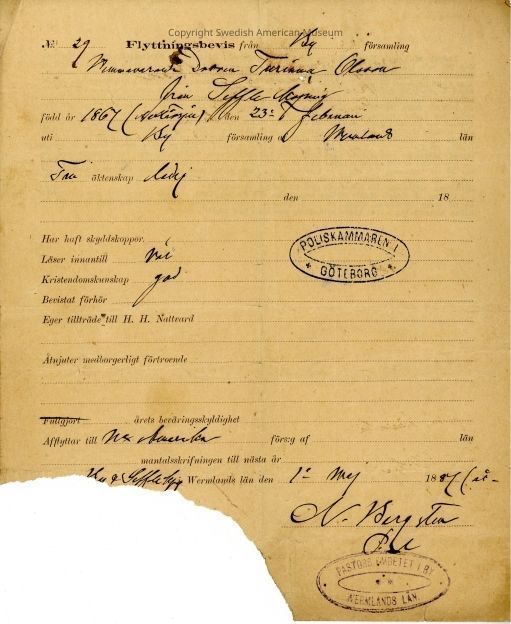 Copyright Swedish American Museum
№ 29 Flyttningsbevis från By församling
Olsson
från Seffle
född år 1867 ( den 23: Februari
uti By församling a Wermlands län
Fri äktenskap ledig
den 18
Har haft skyddskoppor.
Läser innantill väl
Kristendomskunskap god
Bevistat förhör
Eger tillträde till H. H. Nattvard
Åtnjuter medborgerligt förtroende
POLISKAMMAREN I
GÖTEBORG
Fullgjort årets beväringsskyldighet
Afflyttar till Nor Amerika förs:g af län
mantalsskrifningen till nästa år
By & Seffle Wermlands län den 1: Maj 1887 (
N. Bergsten
PASTORSEMBETET I BY
WERMLANDS LÄN.